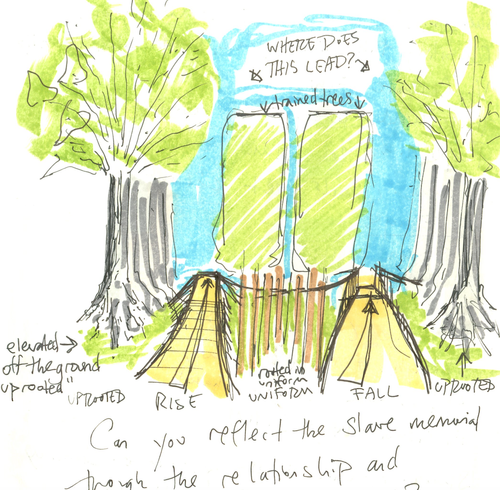 WHERE DOES
THIS LEAD?
trained trees
elevated →
off the ground
uprooted"
UPROOTED
RISE
rooted in
uniform
UNIFORM
FALL
UPROOTED
Can you reflect the slave memorial
though the relationship and